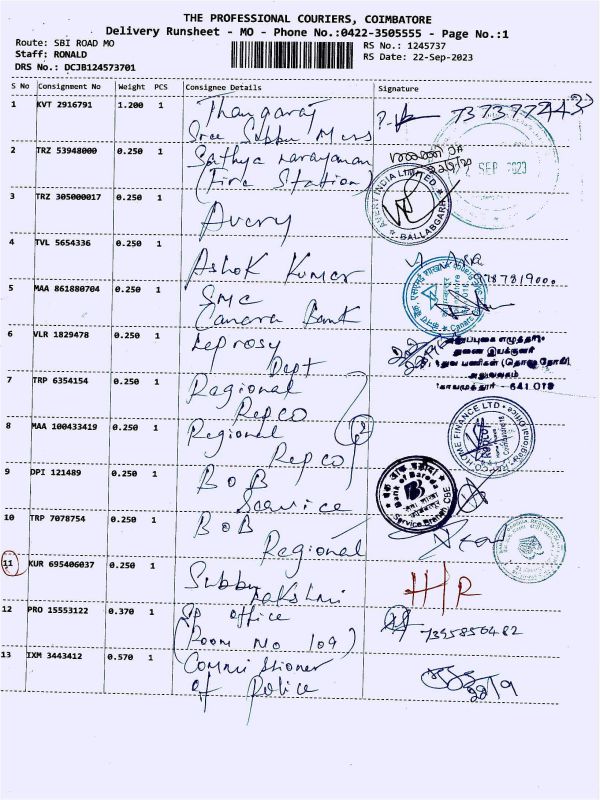 THE PROFESSIONAL COURIERS, COIMBATORE
Delivery Runsheet - MO - Phone No.:0422-3505555 - Page No.:1
Route: SBI ROAD MO
RS No.: 1245737
Staff: RONALD
RS Date: 22-Sep-2023
DRS No.: DCJB124573701
S No Consignment No Weight PCS Consignee Details Signature
1 KVT 2916791 1.200 1 Thangaraj
Sree Subbu Mess
2 TRZ 53948000 0.250 1 Sathya narayanan
(Fire Station)
2 SEP 2023
3 TRZ 305000017 0.250 1 Avery
AVERY INDIA LIMITED
BALLABGARH
4 TVL 5654336 0.250 1 Ashok Kumar
5 MAA 861880704 0.250 1 SMC
Canara Bank
6 VLR 1829478 0.250 1 Leprosy
Dept
துணை இயக்குனர்
அலுவலகம்
641 018
7 TRP 6354154 0.250 1 Regional
Repco
8 MAA 100433419 0.250 1 Regional
Repco
2
REPCO HOME FINANCE LTD
Regional Office
9 DPI 121489 0.250 1 BOB
Service
Bank of Baroda
Service Branch CBE
10 TRP 7078754 0.250 1 BOB
Regional
11 KUR 695406037 0.250 1 Subbu
lakshmi
HR
12 PRO 15553122 0.370 1 SP office
(Room No 109)
7395850482
13 IXM 3443412 0.570 1 Commissioner
of Police
22/9